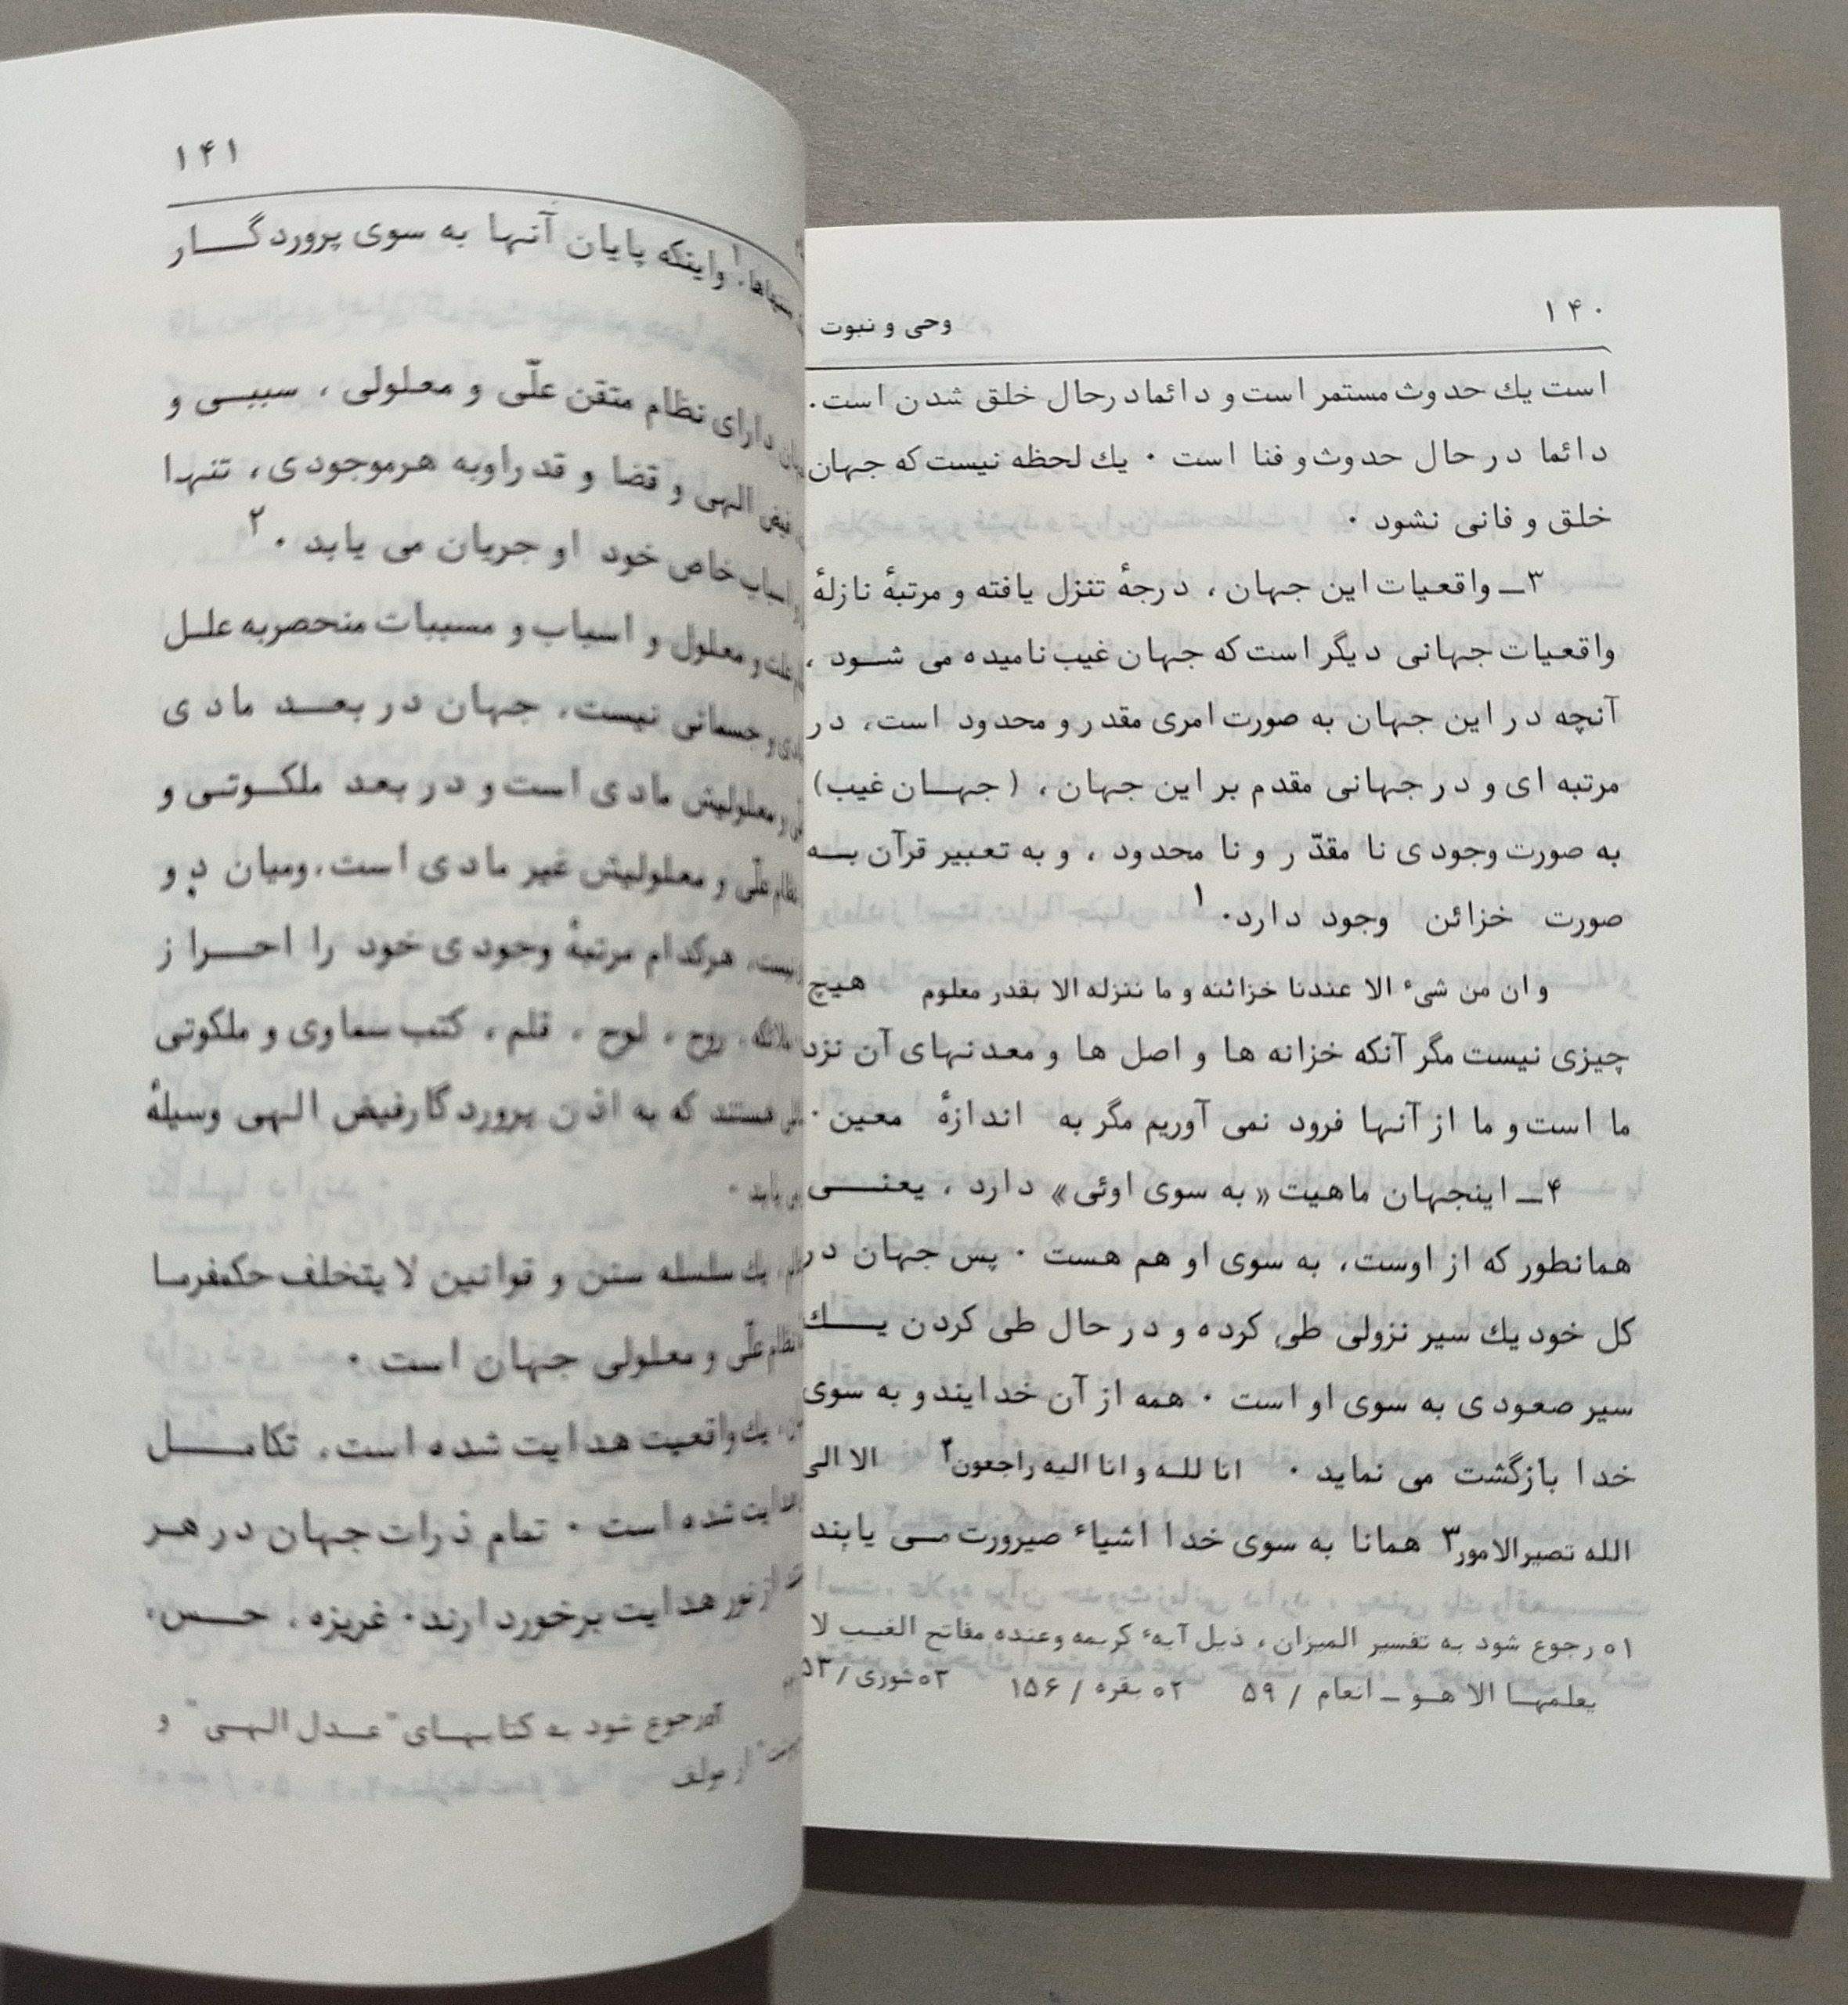 ۱۴۰
وحی و نبوت
است یك حدوث مستمر است و دائمادرحال خلق شدن است.
دائما درحال حدوث و فنا است ۰ یك لحظه نیست که جهان
خلق و فانی نشود ۰
۳ــ واقعیات این جهان ، درجهٔ تنزل یافته و مرتبهٔ نازلهٔ
واقعیات جهانی دیگر است که جهان غیب نامیده می شــود ،
آنچه در این جهان به صورت امری مقدر و محدود است، در
مرتبه ای و در جهانی مقدم بر این جهان ، ( جهــان غیب)
به صورت وجودی نا مقدّر و نا محدود ، و به تعبیر قرآن بــه
صورت خزائن وجود دارد۰ ۱
و ان من شیء الا عندنا خزائنه و ما ننزله الا بقدر معلوم هیچ
چیزی نیست مگر آنکه خزانه ها و اصل ها و معدنهای آن نزد
ما است و ما از آنها فرود نمی آوریم مگر به اندازهٔ معین ۰
۴ــ اینجهان ماهیت « به سوی اوئی» دارد ، یعنــــی
همانطور که از اوست، به سوی او هم هست ۰ پس جهان در
کل خود یك سیر نزولی طی کرده و در حال طی کردن یــــك
سیر صعودی به سوی او است ۰ همه از آن خدایند و به سوی
خدا بازگشت می نماید ۰ انا للــه و انا الیه راجعون۲ الا الی
الله تصیرالامور۳ همانا به سوی خدا اشیاء صیرورت مــی یابند
۱۰ رجوع شود به تفسیر المیزان ، ذیل آیهء کریمه وعنده مفاتح الغیب لا
یعلمهــا الا هــو ــ انعام / ۵۹ ۲۰ بقره / ۱۵۶ ۳۰ شوری / ۵۳
۱۴۱
۱ واینکه پایان آنها به سوی پروردگــــار
دارای نظام متقن علّی و معلولی ، سببــی و
فیض الهی و قضا و قدراوبه هرموجودی، تنهـا
اسباب خاص خود او جریان می یابد ۰ ۲
علت و معلول و اسباب و مسببات منحصربه علـل
و جسمانی نیست، جهان در بعــد مادی
و معلولیش مادی است و در بعد ملکــوتــی و
نظام علّی و معلولیش غیر مادی است، ومیان دو
نیست، هرکدام مرتبهٔ وجودی خود را احــــراز
ملائکه، روح ، لوح ، قلم ، کتب سماوی و ملکوتی
هستند که به اذن پروردگارفیض الهی وسیلهٔ
یابد ۰
یك سلسله سنن و قوانین لایتخلف حکمفرما
نظام علّی و معلولی جهان است ۰
یك واقعیت هدایت شده است، تکامــــل
شده است ۰ تمام ذرات جهان در هــر
از نور هدایت برخوردارند۰ غریزه ، حــــس،
رجوع شود به کتابهــای "عــدل الهــی" و
از مولف